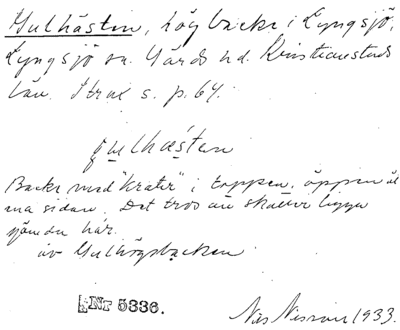 Gulhästen, hög backe i Lyngsjö,
Lyngsjö sn. Gärds hd. Kristianstads
län. s. p. 64.
gulhæsten
Backe med "krater" i toppen, öppen åt
ena sidan. Det tros att skatter ligga
gömda här.
av Gulhögsbacken
Nr 5336.
Nils Nilsson 1933.